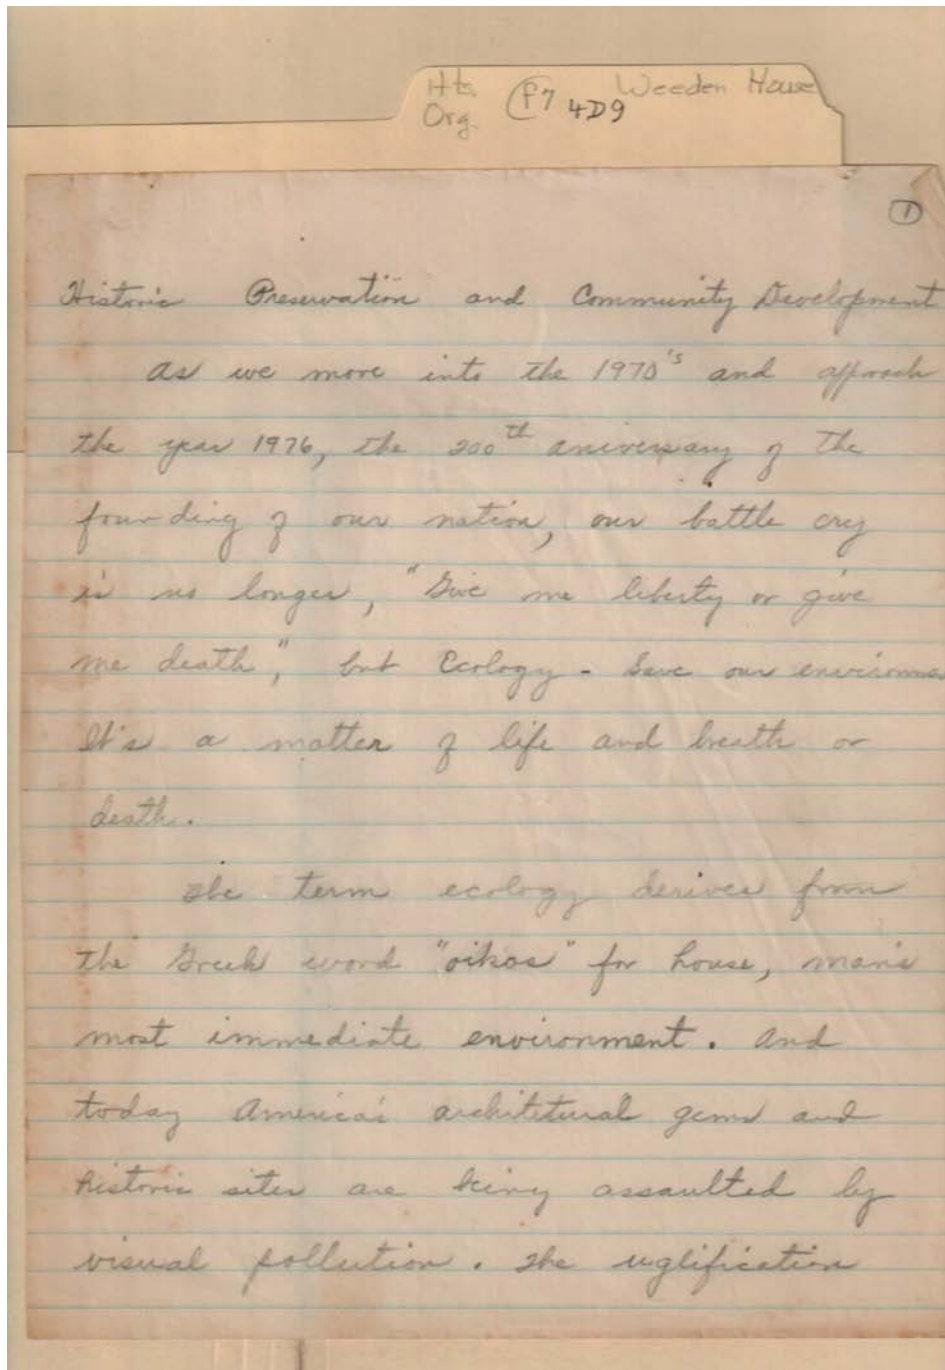 Hts. Org. f7 4D9 Weeden House
1
Historic Preservation and Community Development
As we move into the 1970's and approach
the year 1976, the 200th aniversary of the
founding of our nation, our battle cry
is no longer, "Give me liberty or give
me death", but Ecology - Save our environme
It's a matter of life and breath or
death.
The term ecology derives from
the Greek word "oikos" for house, man's
most immediate environment. And
today America's architetural gems and
historic sites are being assaulted by
visual pollution. The uglification